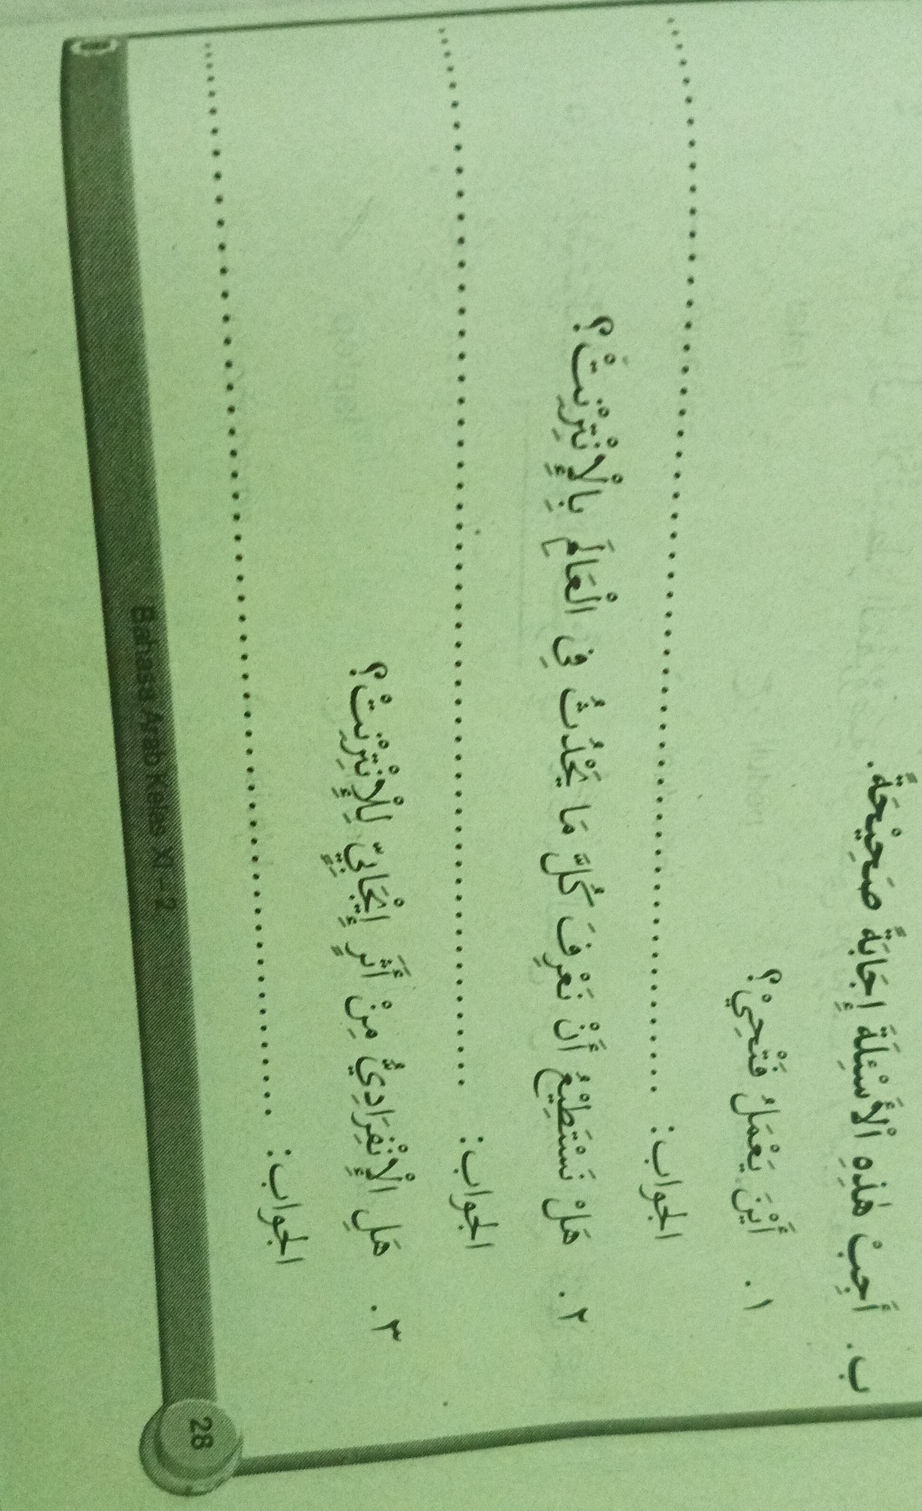 ب. أَجِبْ هٰذِهِ الْأَسْئِلَةَ إِجَابَةً صَحِيْحَةً.
١. أَيْنَ يَعْمَلُ فَتْحِيْ؟
الجواب: ................................................
٢. هَلْ نَسْتَطِيْعُ أَنْ نَعْرِفَ كُلَّ مَا يَحْدُثُ فِى الْعَالَمِ بِالْإِنْتِرْنِتْ؟
الجواب: ................................................
٣. هَلِ الْإِنْفِرَادِيُّ مِنْ أَثَرٍ إِيْجَابِيٍّ لِلْإِنْتِرْنِتْ؟
الجواب: ................................................
Bahasa Arab Kelas XI – 2
28